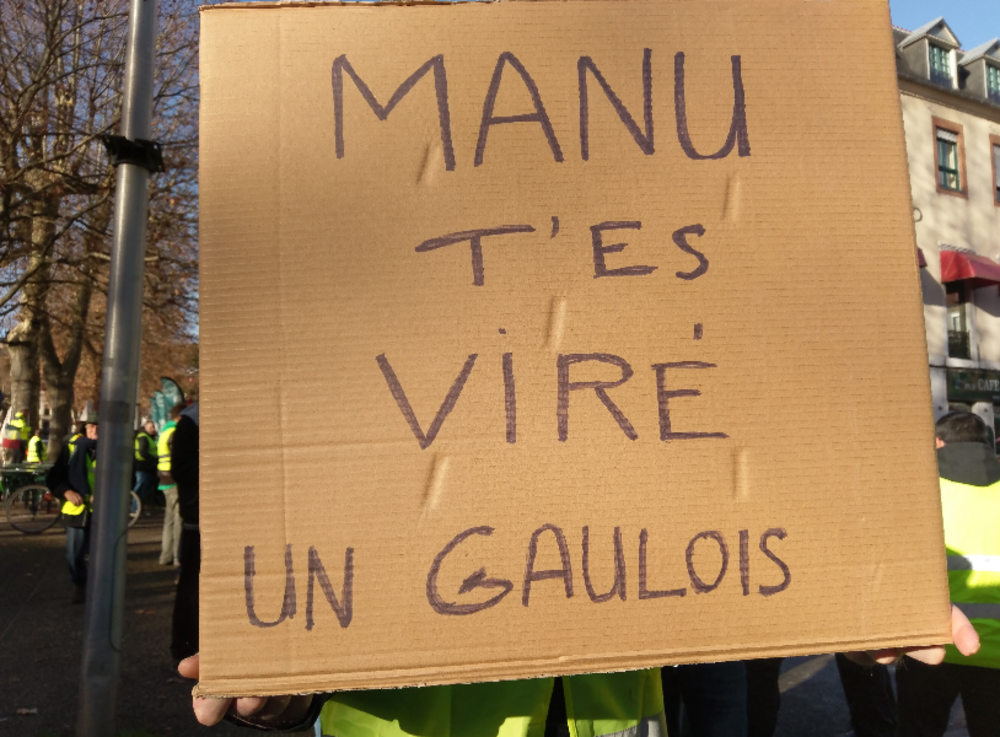 MANU
T'ES
VIRÉ
UN GAULOIS
CAFE